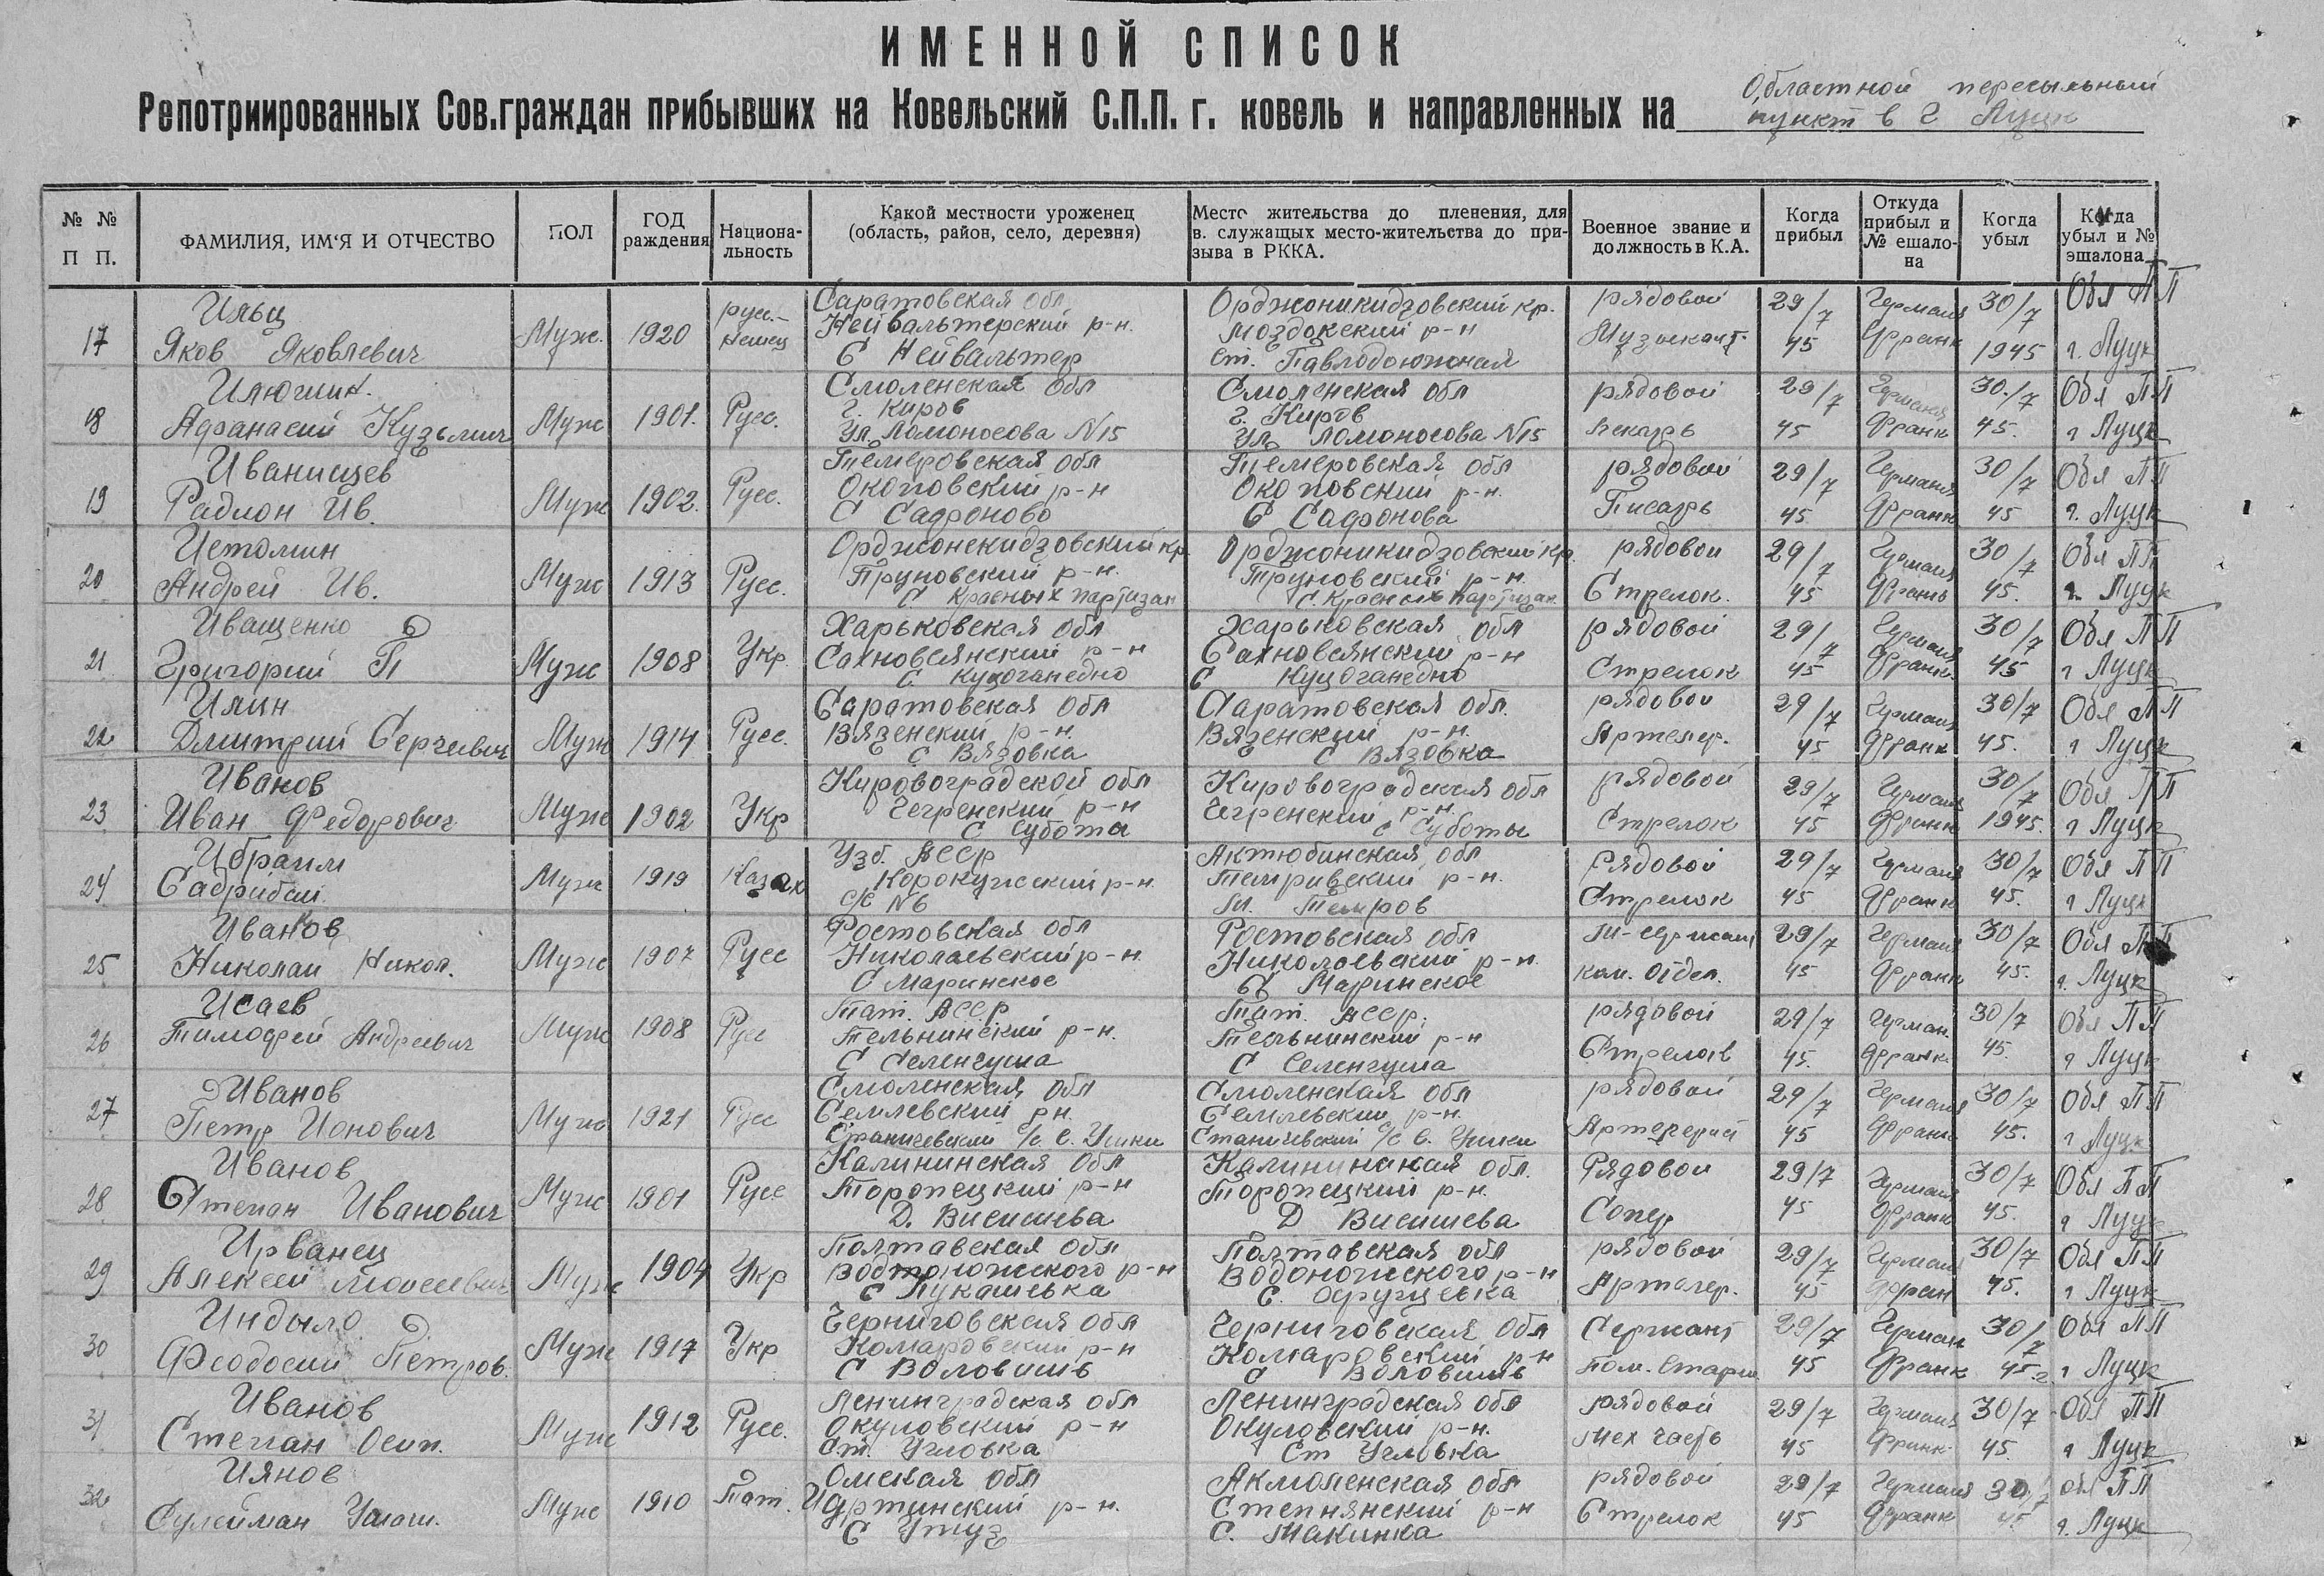 ИМЕННОЙ СПИСОК
Репотриированных Сов.граждан прибывших на Ковельский С.П.П. г. ковель и направленных на Областной пересыльный
пункт в г Луцк
№ № П П. ФАМИЛИЯ, ИМ'Я И ОТЧЕСТВО ПОЛ ГОД раждения Национа-льность Какой местности уроженец (область, район, село, деревня) Место жительства до пленения, для в. служащих место-жительства до при-зыва в РККА. Военное звание и должность в К.А. Когда прибыл Откуда прибыл и № ешало-на Когда убыл Когда убыл и № эшалона
Ильц Саратовская обл Орджоникидзовский кр. рядовой 29/7 Германия 30/7 Обл ПП
17 Яков Яковлевич Муж. 1920 русс.-немец Нейвальтерский р-н. Моздокский р-н Музыкант. 45 Франк 1945 г. Луцк
С Нейвальтер ст. Павлодоюжная
Илюшин. Смоленская обл Смоленская обл рядовой 29/7 Германия 30/7 Обл ПП
18 Афанасий Кузьмич Муж 1901. Русс. г. Киров г. Киров пекарь 45 Франк 45. г Луцк
Ул. Ломоносова N15 Ул. Ломоносова N15
Иванищев Темеровская обл Темеровская обл рядовой 29/7 Германия 30/7 Обл ПП
19 Радион Ив. Муж 1902. Русс. Окоповский р-н Окоповский р-н. Писарь 45 Франк 45 г. Луцк
С Сафоново С Сафонова
Истомин Орджонекидзовский кр. Орджоникидзовский кр. рядовой 29/7 Германия 30/7 Обл ПП
20 Андрей Ив. Муж 1913 Русс. Труновский р-н. Труновский р-н. Стрелок. 45 Франк 45. г. Луцк
С Красных партизан С. Красных партизан
Иващенко Харьковская обл Харьковская обл рядовой 29/7 Германия 30/7 Обл ПП
21 Григорий П Муж 1908 Укр. Сахновсянский р-н Сахновсянский р-н Стрелок 45 Франк. 45 г Луцк
С. С
Илин Саратовская обл Саратовская обл. рядовой 29/7 Германия 30/7 Обл ПП
22 Дмитрий Сергиевич Муж 1914 Русс. Вязенский р-н. Вязенский р-н. Артелер. 45 Франк 45. г Луцк
С Вязовка С Вязовка
Иванов Кировоградской обл Кировоградская обл рядовой 29/7 Германия 30/7 Обл ПП
23 Иван Федорович Муж 1902 Укр Чегренский р-н Чегренский р-н. Стрелок 45 Франк 1945. г Луцк
С Субота С Суботы
Ибраим Узб. АССР Актюбинская обл рядовой 29/7 Германия 30/7 Обл ПП
24 Садрибай. Муж 1919 Казах Корокужский р-н. Темривский р-н. Стрелок 45 Франк 45. г Луцк
с/с N6 Темров
Иванов Ростовская обл Ростовская обл 29/7 Германия 30/7 Обл ПП
25 Николай Никол. Муж 1907 Русс Николаевский р-н. Николаевский р-н. ком. отдел. 45 Франк 45. г. Луцк
С Маринское С Маринское
Исаев Тат. АССР Тат. АССР. рядовой 29/7 Герман. 30/7 Обл ПП
26 Тимофей Андреевич Муж 1908 Русс Тельнинский р-н. Тельнинский р-н Стрелок 45. Франк. 45. г Луцк
С Селенгуша С Селенгуша
Иванов Смоленская обл Смоленская обл рядовой 29/7 Германия 30/7 Обл ПП
27 Петр Ионович Муж 1921 Русс Семлевский рн. Семлевский р-н. Артелерист 45 Франк 45. г Луцк
Станичевский с/с с. Ушки Станичевский с/с с. Ушки
Иванов Калининская обл Калининская обл. Рядовой 29/7 Германия 30/7 Обл ПП
28 Степан Иванович Муж 1901 Русс Торопецкий р-н Торопецкий р-н. Сопер 45 Франк 45. г Луцк
Д. Висишева Д Висишева
Ирванец Полтавская обл Полтавская обл рядовой 29/7 Германия 30/7 Обл ПП
29 Алексей Моисеевич Муж 1904 Укр р-н Водоножского р-н Артелер. 45 Фран 45. г Луцк
С Лукашевка С.
Индыло Черниговская обл Черниговская обл Сержант 29/7 Герман 30/7 Обл ПП
30 Феодосий Петров. Муж 1917 Укр Комаровский р-н Комаровский р-н Пом. Старш. 45 Франк 45г. г Луцк
С Воловишь С Воловишь
Иванов Ленинградская обл Ленинградская обл рядовой 29/7 Германия 30/7 Обл ПП
31 Степан Осип. Муж 1912 Русс. Окуловский р-н Окуловский р-н. мех часть 45 Франк. 45. г Луцк
Ст. Угловка Ст Угловка
Иянов Омская обл Акмоленская обл рядовой 29/7 Германия 30/7 обл ПП
32 Сулейман Муж 1910 Тат. р-н. Степнянский р-н Стрелок 45 Франк 45 г. Луцк
С Утуз С. Макинка